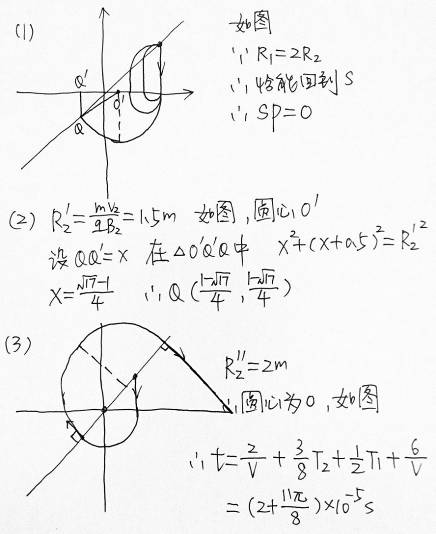 (1)
如图
∵ R₁=2R₂
∴ 恰能回到S
∴ SP=0
Q'
O'
Q
(2) R₂'=mv₂/qB₂=1.5m 如图,圆心O'
设QQ'=x 在△O'Q'Q中 x²+(x+0.5)²=R₂'²
x=(√17-1)/4 ∴Q((1-√17)/4,(1-√17)/4)
(3)
R₂''=2m
∴圆心为O,如图
∴t=2/V+3/8T₂+1/2T₁+6/V
=(2+11π/8)×10⁻⁵s